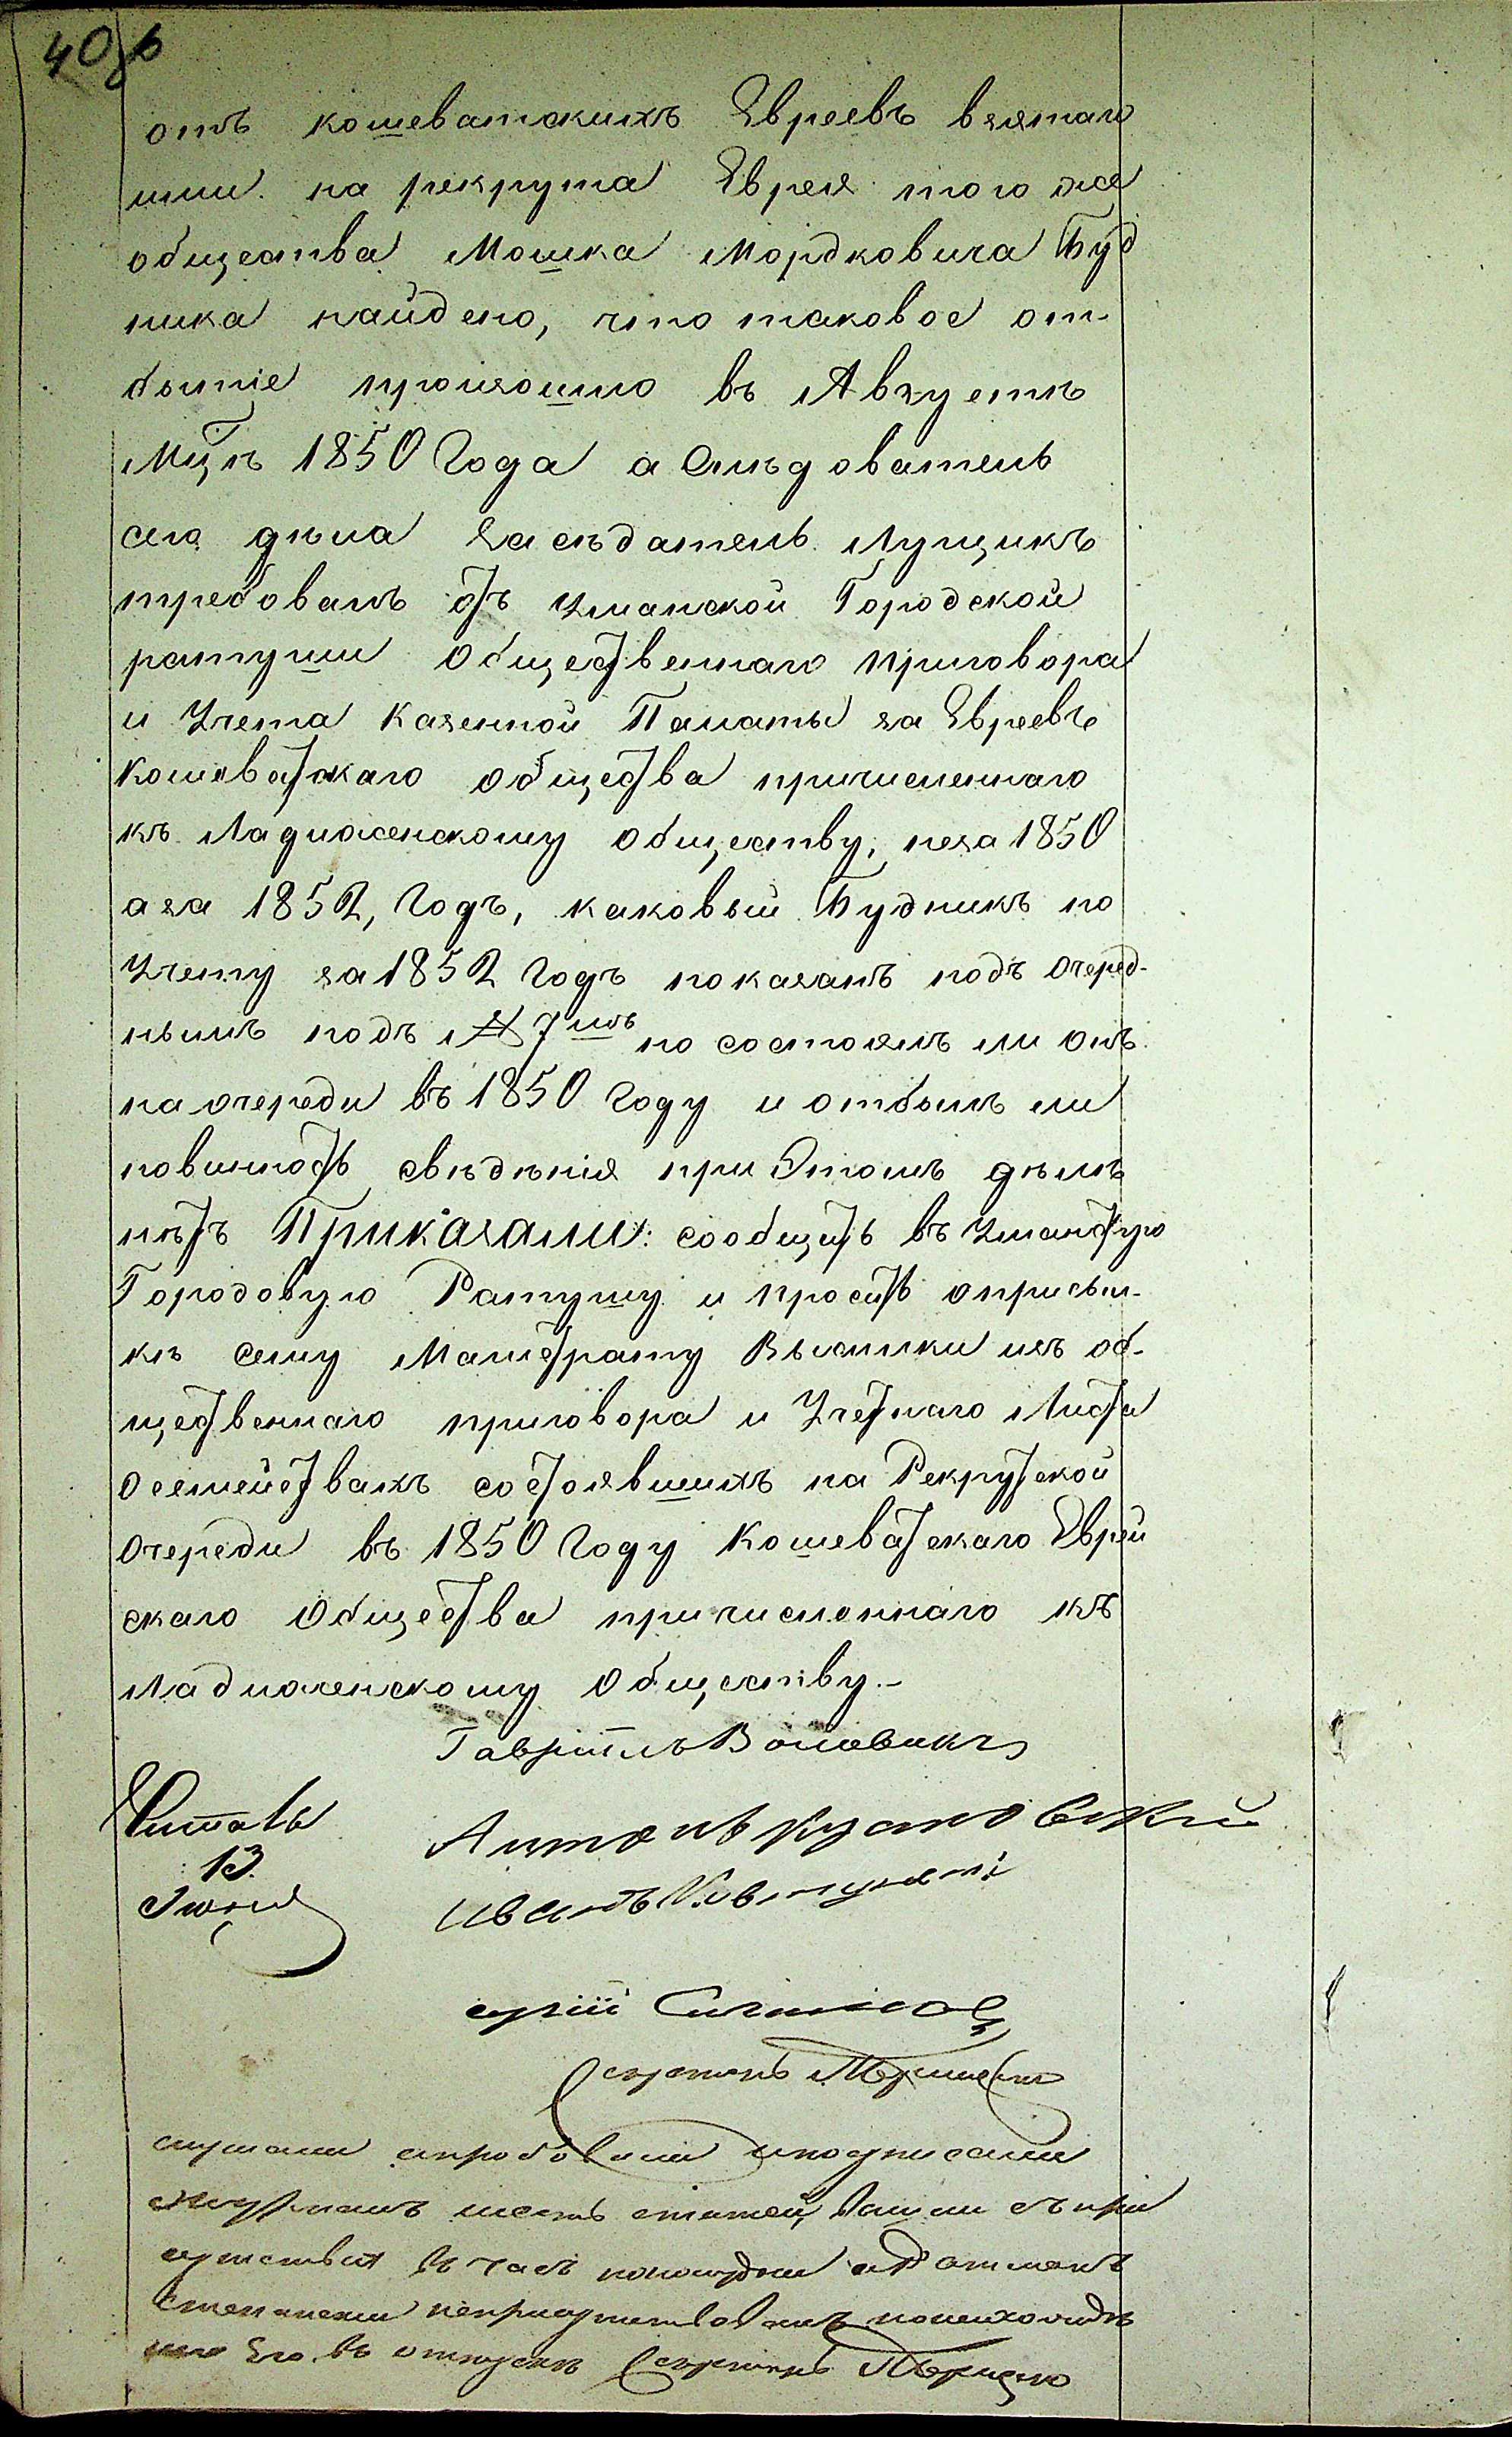 40об
отъ кошеватскихъ Евреевъ взятаго
ими на рекрута Еврея того же
общества Мошка Мордковича Буд
ника найдено, что таковое от-
бытіе произошло въ Августѣ
Мцѣ 1850 Года а Слѣдователь
сего дѣла Засѣдатель Лущикъ
требовалъ отъ Уманской Городской
ратуши Общественнаго приговора
и Учета Казенной Палаты за Евреевъ
Кошеватскаго общества причисленнаго
къ Ладиженскому обществу, неза 1850
аза 1852, Годъ, каковый Будникъ по
Учету за 1852 Годъ показанъ подъ Очеред-
нымъ подъ № 7мъ но состоялъ ли онъ
на очереди въ 1850 Году и отбылъ ли
повинность свѣдѣнія при Этомъ дѣлѣ
нѣтъ Приказали: сообщить въ Уманскую
Городовую Ратушу и просить оприсыл-
кѣ Сему Магистрату Выписки изъ об-
щественнаго приговора и Учетнаго Листа
Осемействахъ состоявшихъ на Рекрутской
Очереди въ 1850 Году Кошеватскаго Еврей
скаго Общества причисленнаго къ
Ладиженскому Обществу.-
Гавріилъ
Читалъ
13
Іюня
Антонъ
Иванъ
Секретарь
слушали апробовали и подписали
шесть статей, вышли съ при
сутствія въ часъ пополудни а Ратманъ
неприсутствовалъ
его въ отпускѣ Секретарь